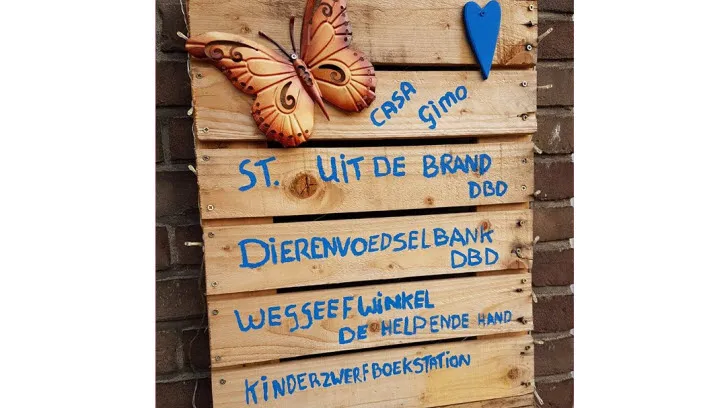 CASA
Gimo
ST. UIT DE BRAND
DBD
DIERENVOEDSELBANK
DBD
WEGGEEFWINKEL
DE HELPENDE HAND
KINDERZWERFBOEKSTATION